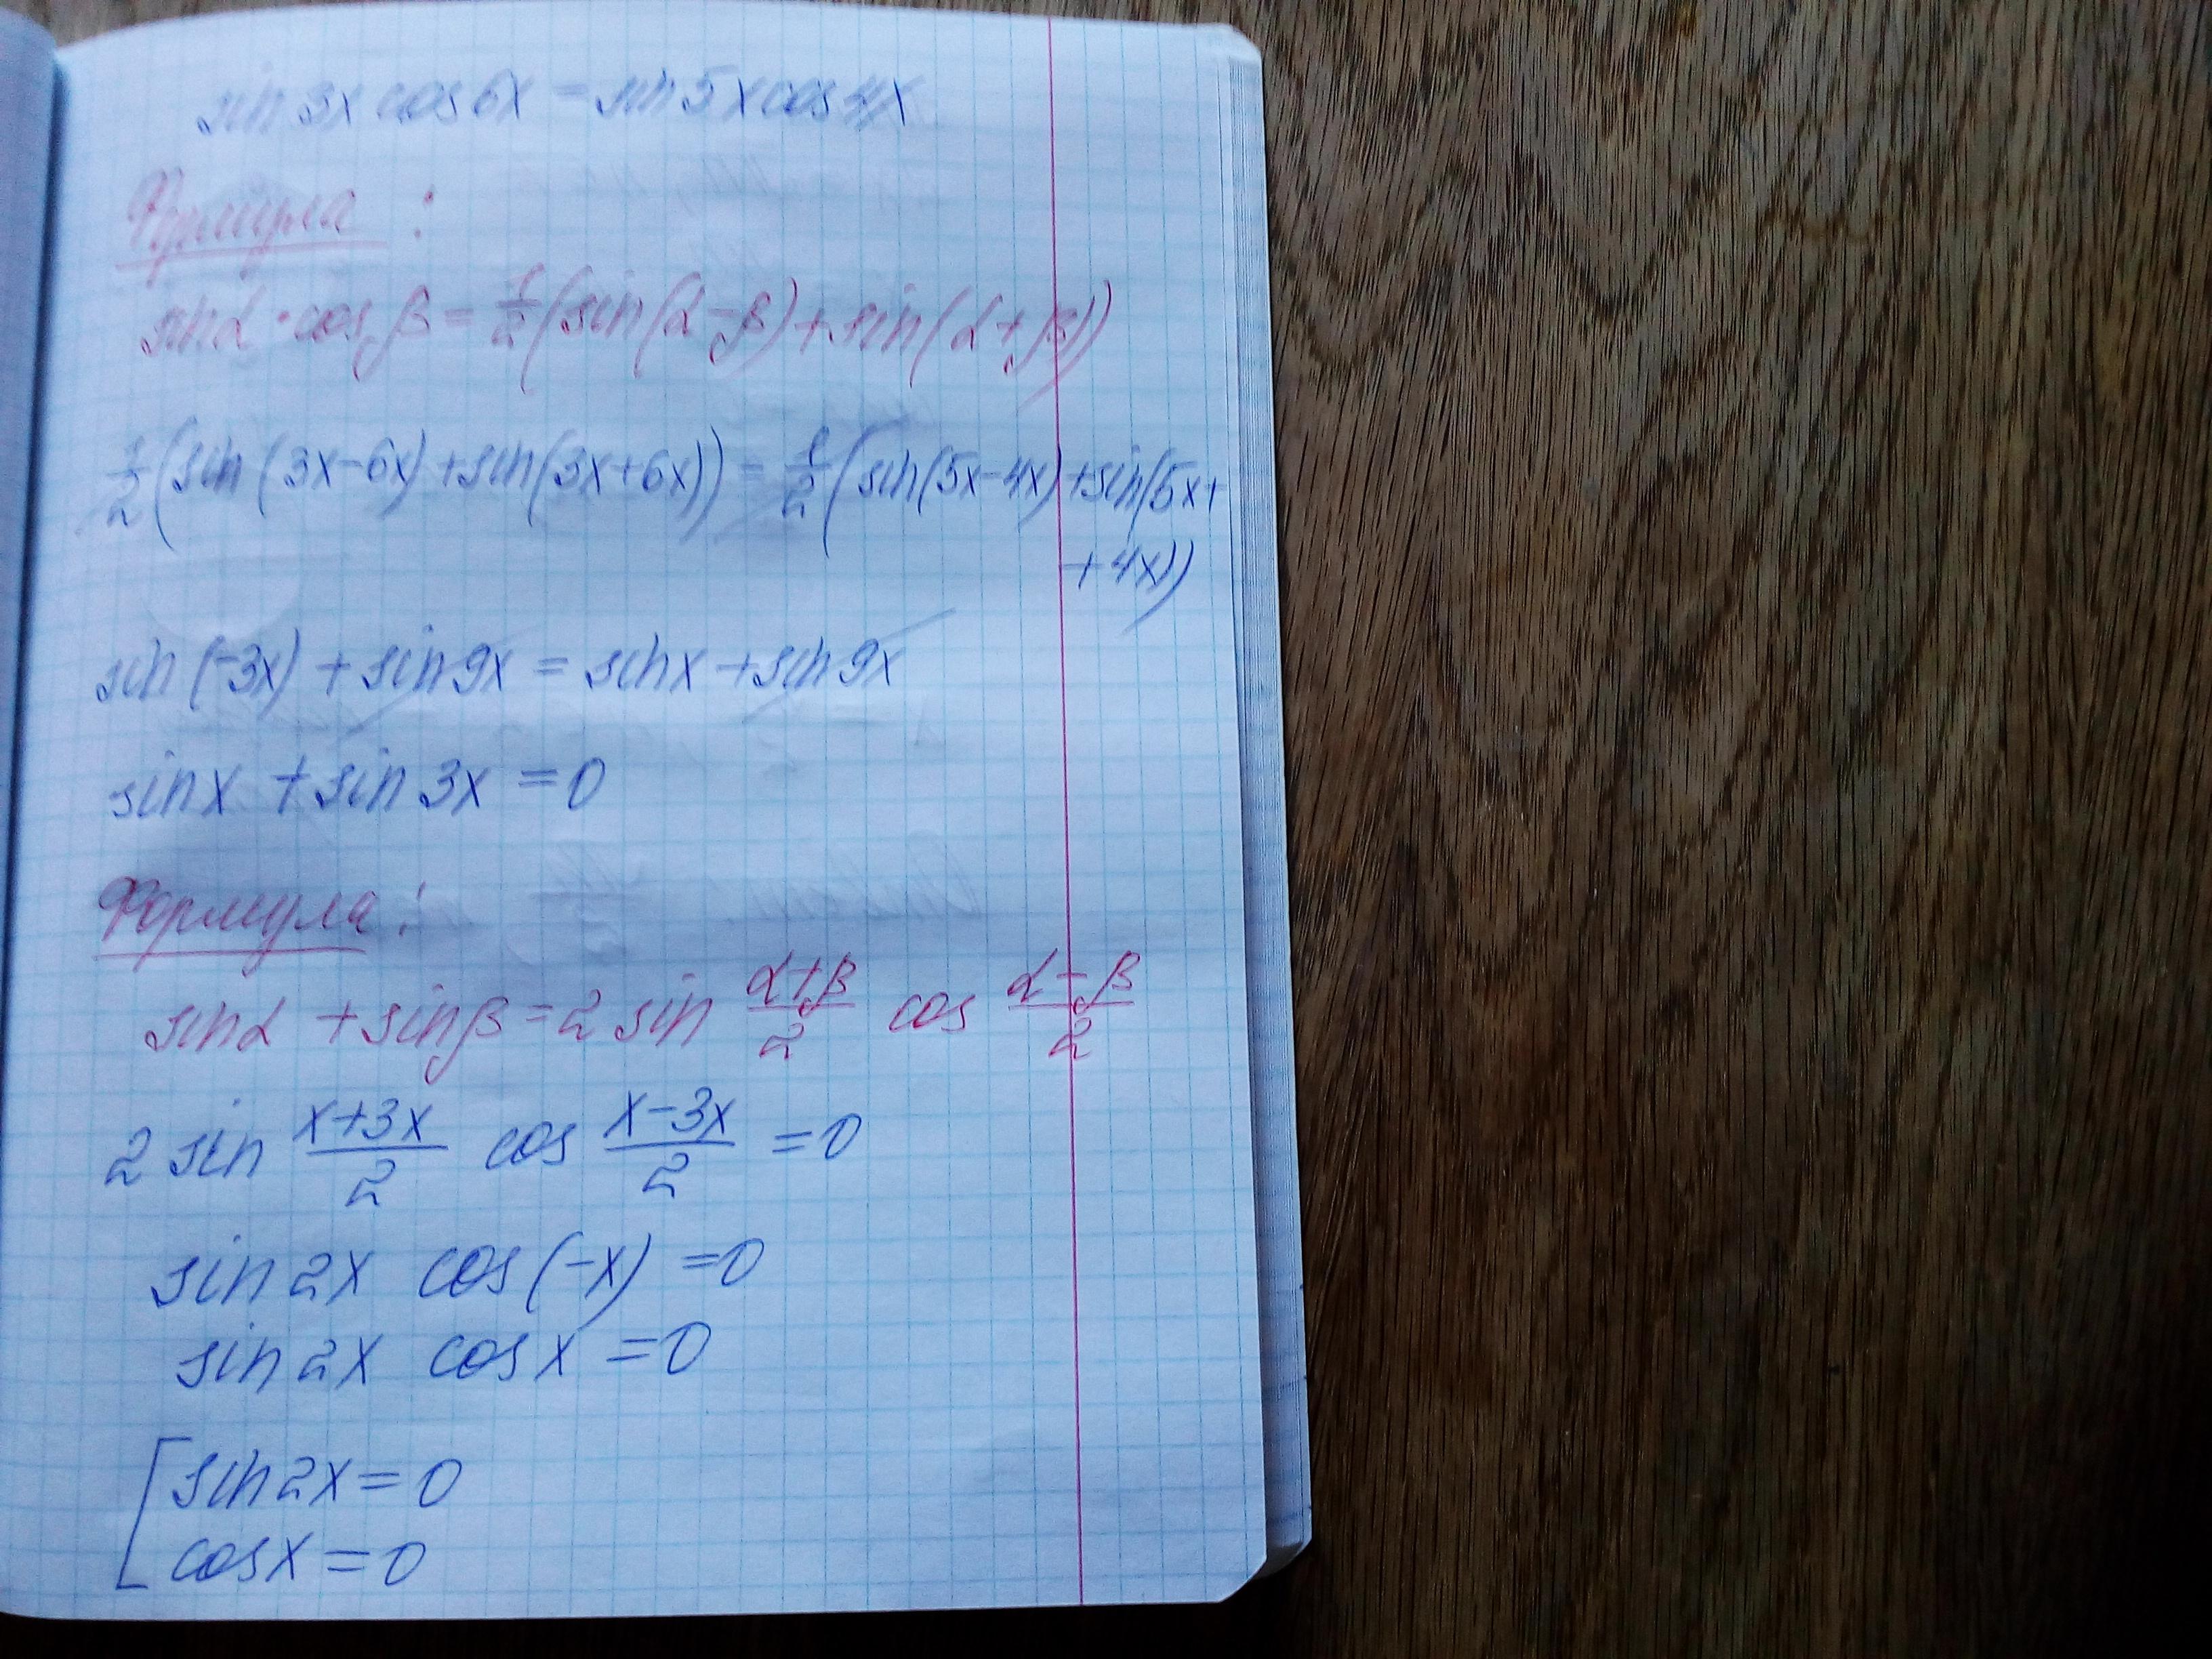 sin 3x cos 6x = sin 5x cos 4x
Формула :
sin α · cos β = 1/2 (sin(α - β) + sin(α + β))
1/2 (sin (3x - 6x) + sin(3x + 6x)) = 1/2 (sin(5x - 4x) + sin(5x +
+ 4x))
sin (-3x) + sin 9x = sin x + sin 9x
sin x + sin 3x = 0
Формула :
sin α + sin β = 2 sin (α + β)/2 cos (α - β)/2
2 sin (x + 3x)/2 cos (x - 3x)/2 = 0
sin 2x cos (-x) = 0
sin 2x cos x = 0
[ sin 2x = 0
cos x = 0